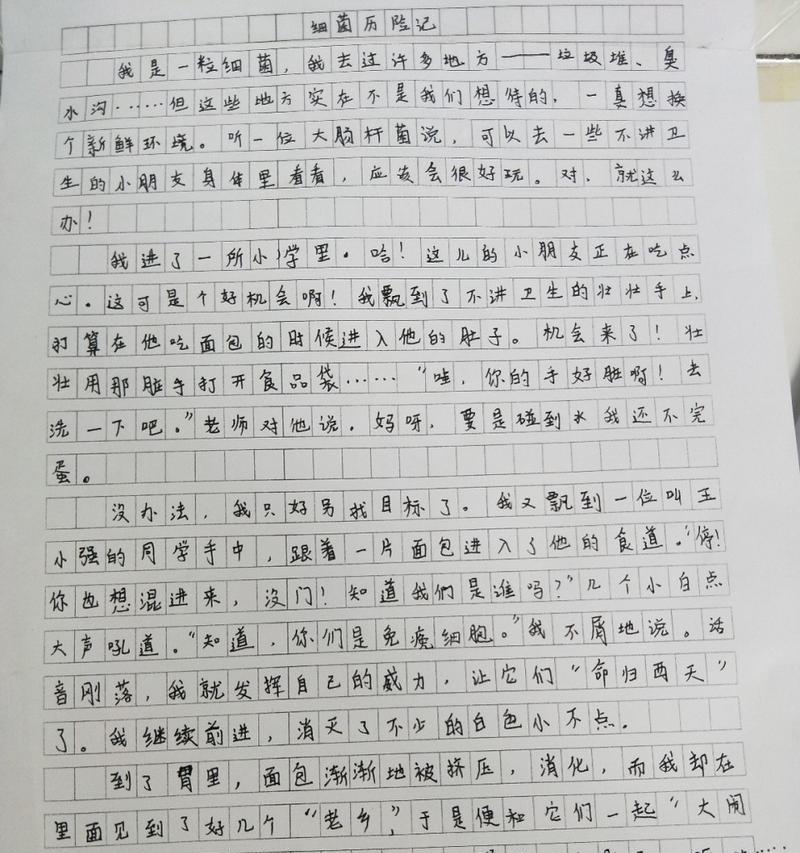 细菌历险记
我是一粒细菌，我去过许多地方——垃圾堆、臭
水沟……但这些地方实在不是我们想待的，一真想换
个新鲜环境。听一位大肠杆菌说，可以去一些不讲卫
生的小朋友身体里看看，应该会很好玩。对，就这么
办！
我进了一所小学里。哈！这儿的小朋友正在吃点
心。这可是个好机会啊！我飘到了不讲卫生的壮壮手上，
打算在他吃面包的时候进入他的肚子。机会来了！壮
壮用那脏手打开食品袋……“哇，你的手好脏啊！去
洗一下吧。”老师对他说。妈呀，要是碰到水我还不完
蛋。
没办法，我只好另找目标了。我又飘到一位叫王
小强的同学手中，跟着一片面包进入了他的食道。“停！
你也想混进来，没门！知道我们是谁吗？”几个小白点
大声吼道。“知道，你们是免疫细胞。”我不屑地说。话
音刚落，我就发挥自己的威力，让它们“命归西天”
了。我继续前进，消灭了不少的白色小不点。
到了胃里，面包渐渐地被挤压，消化，而我却在
里面见到了好几个“老乡”，于是便和它们一起“大闹